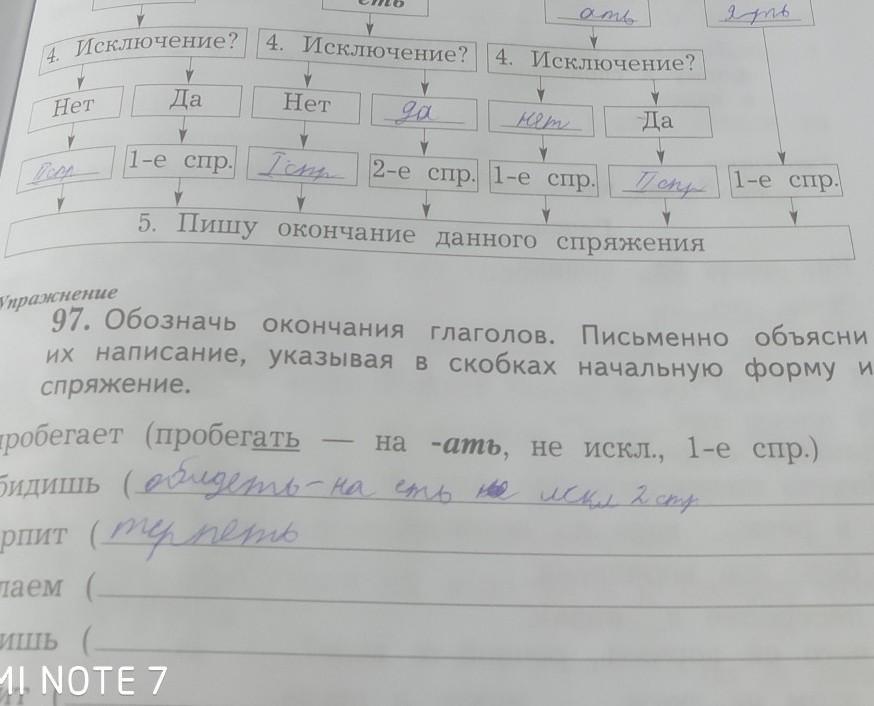 еть
ать ять
4. Исключение? 4. Исключение? 4. Исключение?
Нет Да Нет да нет Да
II спр 1-е спр. I спр 2-е спр. 1-е спр. II спр 1-е спр.
5. Пишу окончание данного спряжения
Упражнение
97. Обозначь окончания глаголов. Письменно объясни
их написание, указывая в скобках начальную форму и
спряжение.
пробегает (пробегать — на -ать, не искл., 1-е спр.)
бидишь (обидеть – на еть искл 2 спр
рпит (терпеть
лаем (
ишь (
ит (
MI NOTE 7